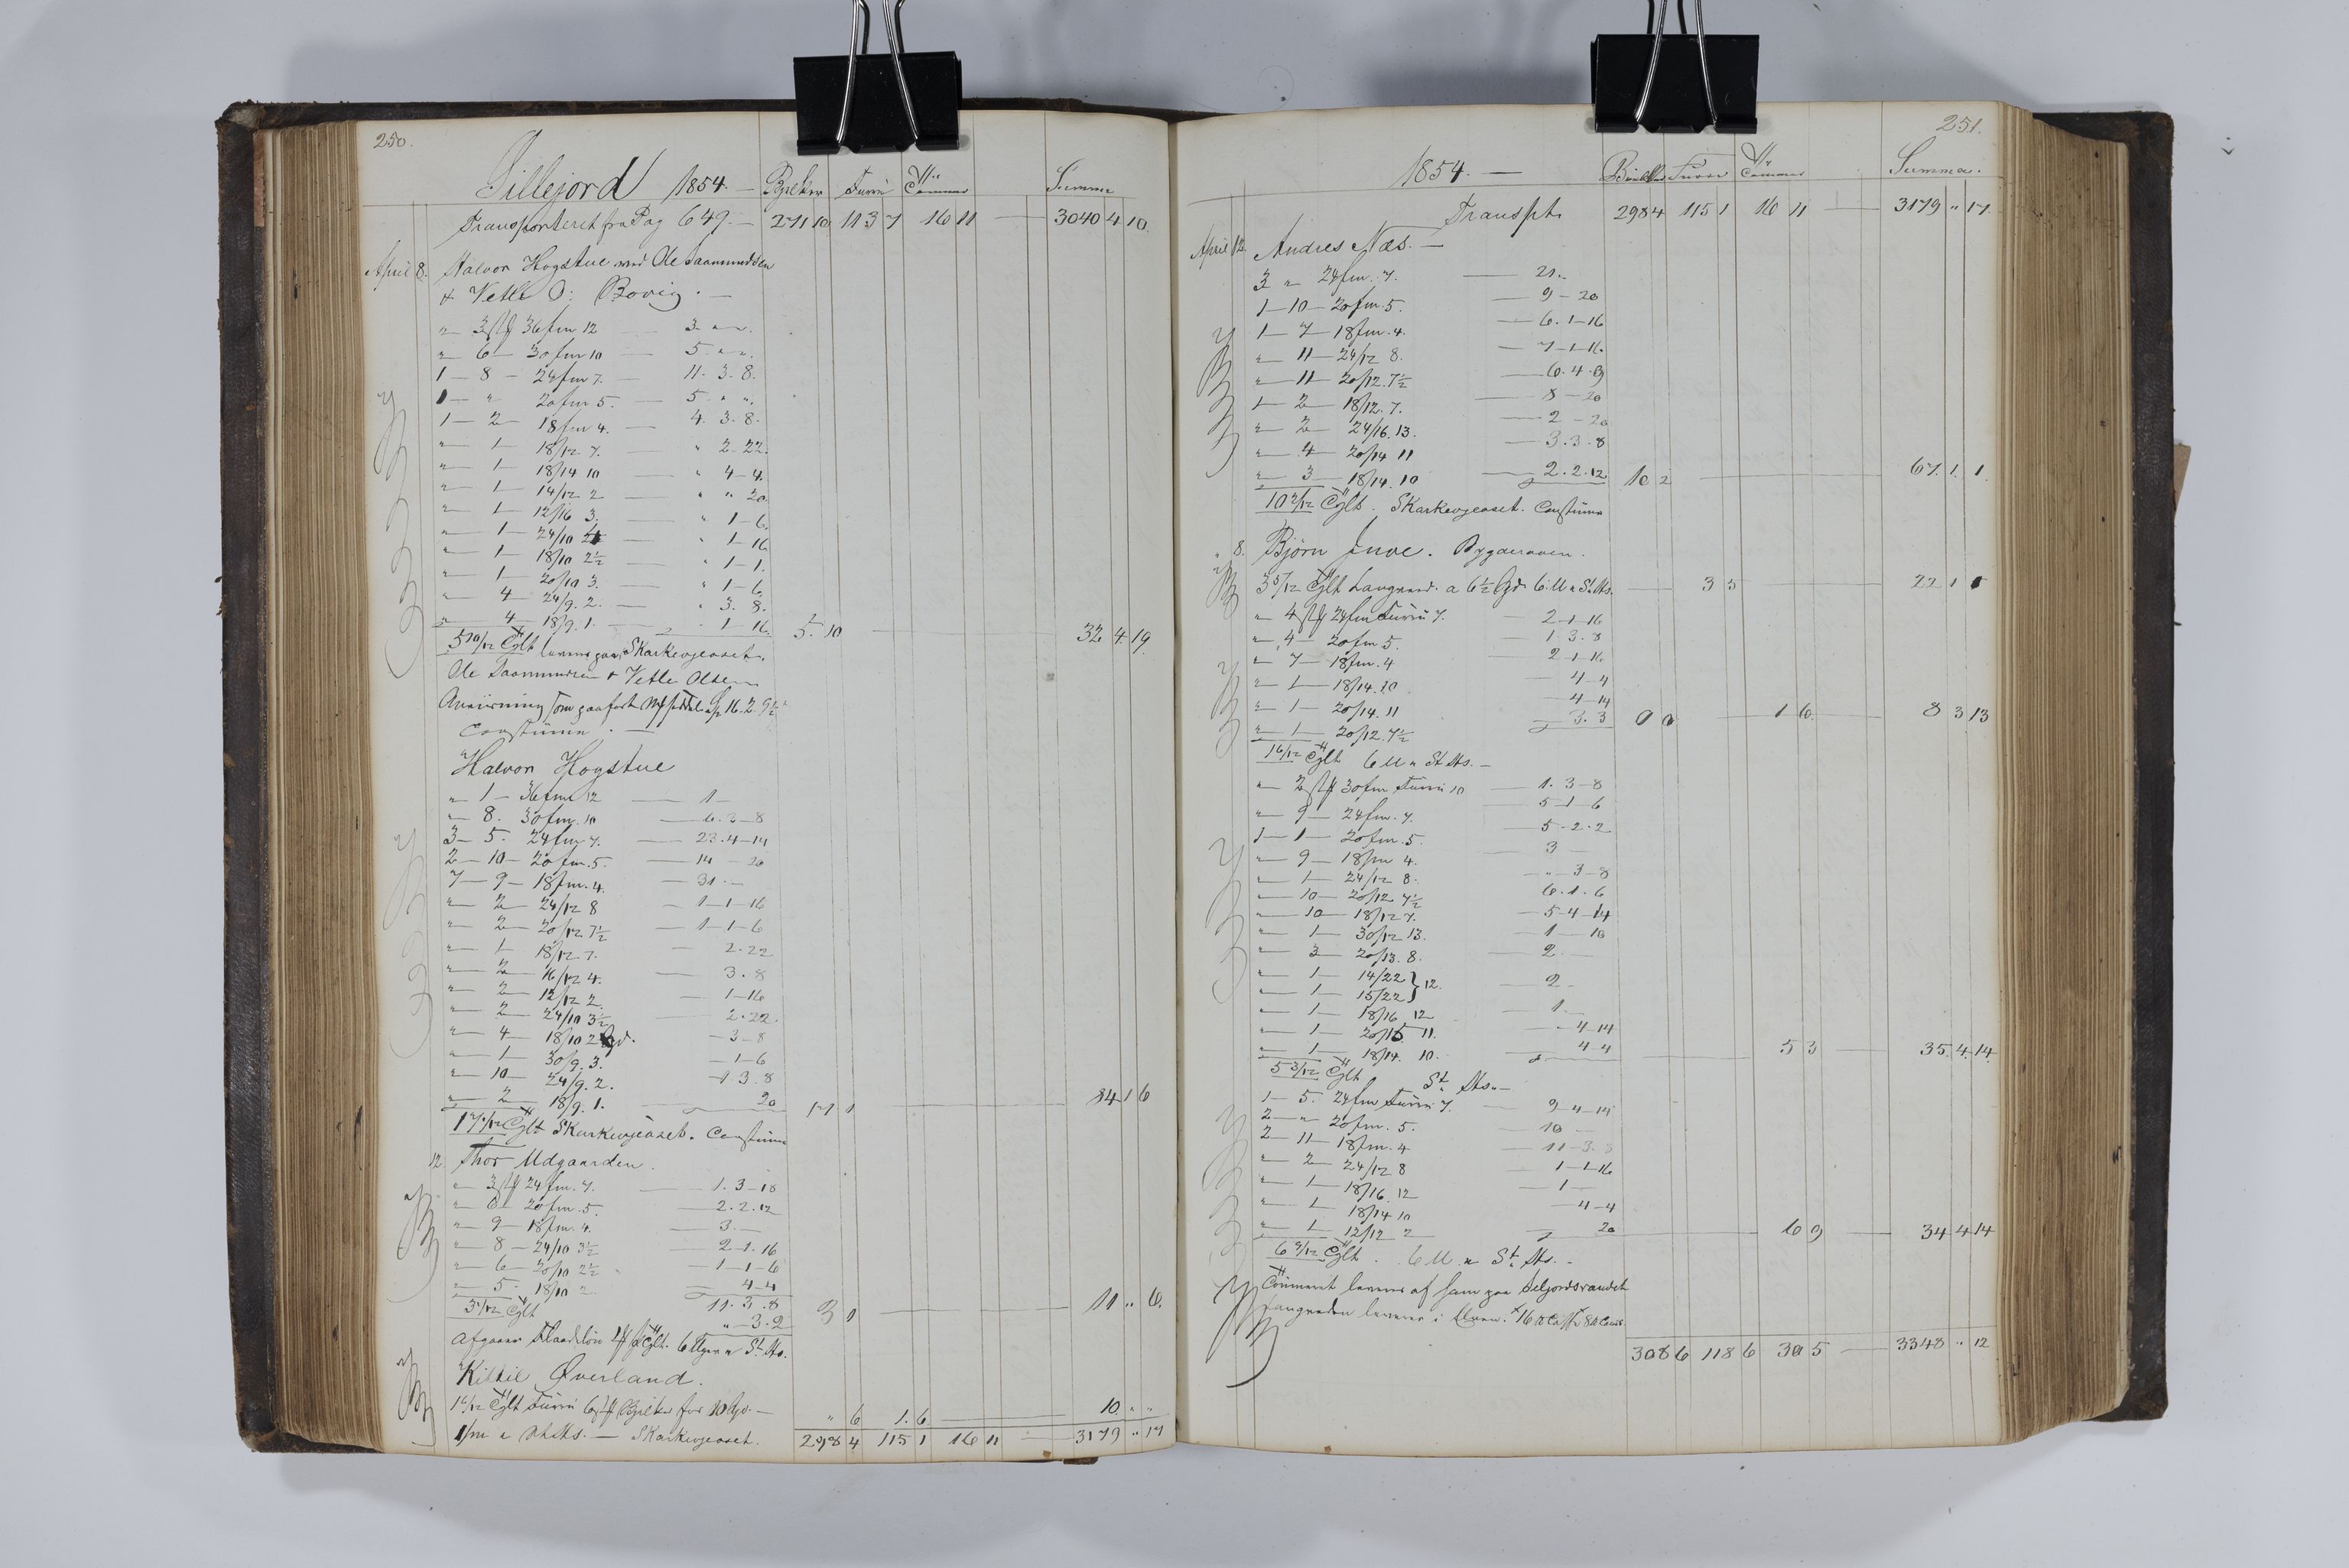 250.
Sillejord 1854. — Bjelker Furru Tømmer Summa
Transporteret fra Pag 649. — 271 10 113 7 16 11 — 3040 4 10.
April 8. Halvor Hogstue ved Ole Saamundsen
& Vetle O: Bovig. —
" 3 stk 36 fm 12 — 3 " ".
" 6 — 30 fm 10 — 5 " ".
1 — 8 — 24 fm 7. — 11. 3. 8.
1 — " 20 fm 5. — 5. " ".
1 — 2 — 18 fm 4. — 4. 3. 8.
" — 1 — 18/12 7. — " 2-22.
" — 1 — 18/14 10 — " 4-4.
" — 1 — 14/12 2 — " " 20.
" — 1 — 12/16 3. — " 1-6.
" — 1 — 24/10 — " 1-16
" — 1 — 18/10 2½ — " 1-1.
" — 1 — 20/10 3. — " 1-6.
" — 4 — 24/9. 2. — " 3. 8.
" — 4 — 18/9. 1. — 1-16. 5. 10 — 32 4 19
5 10/12 Tylt levert paa Skarkevjeoset.
Ole Saamundsen & Vetle Olsen
Anviisning som paaført 16-2-9½
Halvor Hogstue
" 1 — 36 fm 12 — 1 —
" 8. 30 fm. 10 — 6. 3-8
3 — 5. 24 fm 7. — 23. 4-14
2 — 10 — 20 fm. 5. — 14 - 20
7 — 9 — 18 fm. 4. — 31. —
" — 2 — 24/12 8 — 1-1-16
" — 2 — 20/12. 7½ — 1-1-6
" — 1 — 18/12. 7. — 2-22
" — 2 — 16/12 4. — 3. 8
" — 2 — 12/12 2. — 1-16
" — 2 — 24/10 3½ — 2-22.
" — 4 — 18/10 2 — 3-8
" — 1 — 30/9. 3. — 1-6
" — 10 — 24/9. 2. — 1. 3. 8
" — 2 — 18/9. 1. — 20 17 1 — 84 1 6
17 1/12 Tylt Skarkevjeoset.
12. Thor Udgaarden.
" — 3 stk 24 fm. 7. — 1. 3-18
" — 6 — 20 fm. 5. — 2. 2. 12
" — 9 — 18 fm. 4. — 3. —
" — 8 — 24/10 3½ — 2-1. 16
" — 6 — 20/10 2½ — 1-1-6
" — 5 — 18/10 2 — 4-4
3 1/12 Tylt 11. 3. 8 3 1 — 11 " 6.
" 3. 2
Kittil Øverland.
1 6/12 Tylt Furru 6 stk Bjelker for 10 — " 6 1. 6 — 10. " "
Skarkevjeoset. 298 4 115 1 16 11 — 3179 " 17
251.
1854. — Bjelker Furru Tømmer Summa.
Transpt. 298 4 115 1 16 11 — 3179 " 17.
April 12. Andres Næs. —
3 " 24 fm. 7. — 21. -
1 — 10 — 20 fm. 5. — 9-20
1 — 7 — 18 fm. 4. — 6. 1-16
" — 11 — 24/12 8. — 7-1-16.
" — 11 — 20/12. 7½ — 6. 4. 9
1 — 2 — 18/12. 7. — 8-20
" — 2 — 24/16. 13. — 2-20
" — 4 — 20/14 11 — 3. 3. 8
" — 3 — 18/14. 10 — 2. 2. 12. 10 2 — 67. 1. 1
10 2/12 Tylt. Skarkevjeoset.
" 8. Bjørn Juve.
3 5/12 Tylt Langved. a 6½ — 3 5 — 22 1
" — 4 stk 24 fm Furru 7. — 2-1-16
" — 4 — 20 fm 5. — 1. 3. 8
" — 7 — 18 fm. 4 — 2-1-16
" — 1 — 18/14. 10. — 4-4
" — 1 — 20/14. 11 — 4-14
" — 1 — 20/12. 7½ — 3. 3 1 6. — 8 3 13
1 6/12 Tylt
" — 2 stk 30 fm Furru 10 — 1. 3-8
" — 9 — 24 fm. 7. — 5-1-6
1 — 1 — 20 fm. 5. — 5-2-2
" — 9 — 18 fm 4. — 3 —
" — 1 — 24/12 8. — " 3-8
" — 10 — 20/12 7½ — 6. 1. 6
" — 10 — 18/12 7. — 5-4-14
" — 1 — 30/12 13. — 1-10
" — 3 — 20/13. 8. — 2 —
" — 1 — 14/22
" — 1 — 15/22 } 12. — 2 -
" — 1 — 18/16. 12 — 1 —
" — 1 — 20/15 11. — 4-14
" — 1 — 18/14. 10. — 4-4 5 3 — 35. 4. 14.
5 3/12 Tylt
1 — 5. 24 fm Furru 7. — 9-4-14
2 — " 20 fm. 5. — 10 —
2 — 11 — 18 fm. 4 — 11-3. 8
" — 2 — 24/12 8 — 1-1-16
" — 1 — 18/16. 12 — 1 —
" — 1 — 18/14 10 — 4-4
" — 1 — 12/12 2 — 20 6 9 — 34 4 14
6 9/12 Tylt.
Tømmeret leveres af ham paa Seljordsvandet
308 6 118 6 30 5 — 3348 " 12